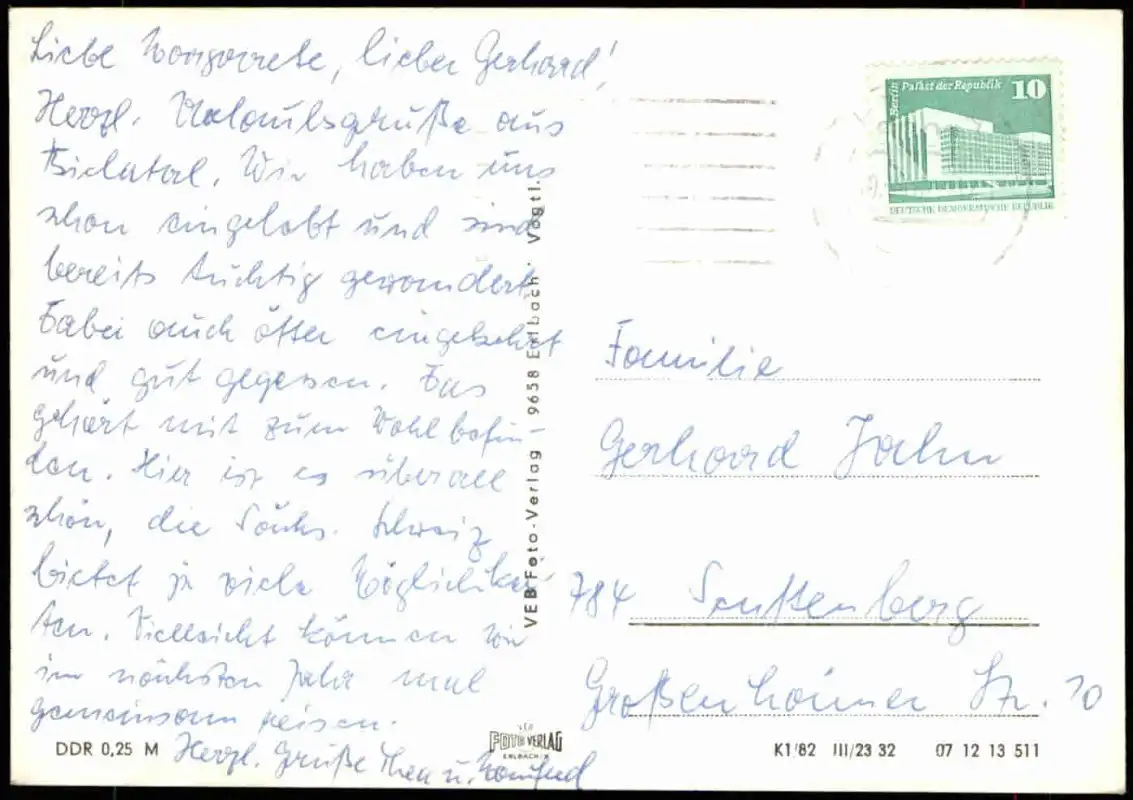 Liebe Margarete, lieber Gerhard!
Herzl. Urlaubsgrüße aus
Bielatal. Wir haben uns
schon eingelebt und sind
bereits tüchtig gewandert.
Dabei auch öfter eingekehrt
und gut gegessen. Das
gehört mit zum Wohlbefin-
den. Hier ist es überall
schön, die Sächs. Schweiz
bietet ja viele Möglichkei-
ten. Vielleicht können wir
im nächsten Jahr mal
gemeinsam reisen.
Herzl. Grüße Thea u. Manfred
DDR 0,25 M
VEB Foto-Verlag 9658 Erlbach · Vogtl.
VEB
FOTO VERLAG
ERLBACH/V.
Berlin Palast der Republik 10
DEUTSCHE DEMOKRATISCHE REPUBLIK
Familie
Gerhard Jahn
784 Senftenberg
Großenhainer Str. 10
K1/82 III/23 32 07 12 13 511